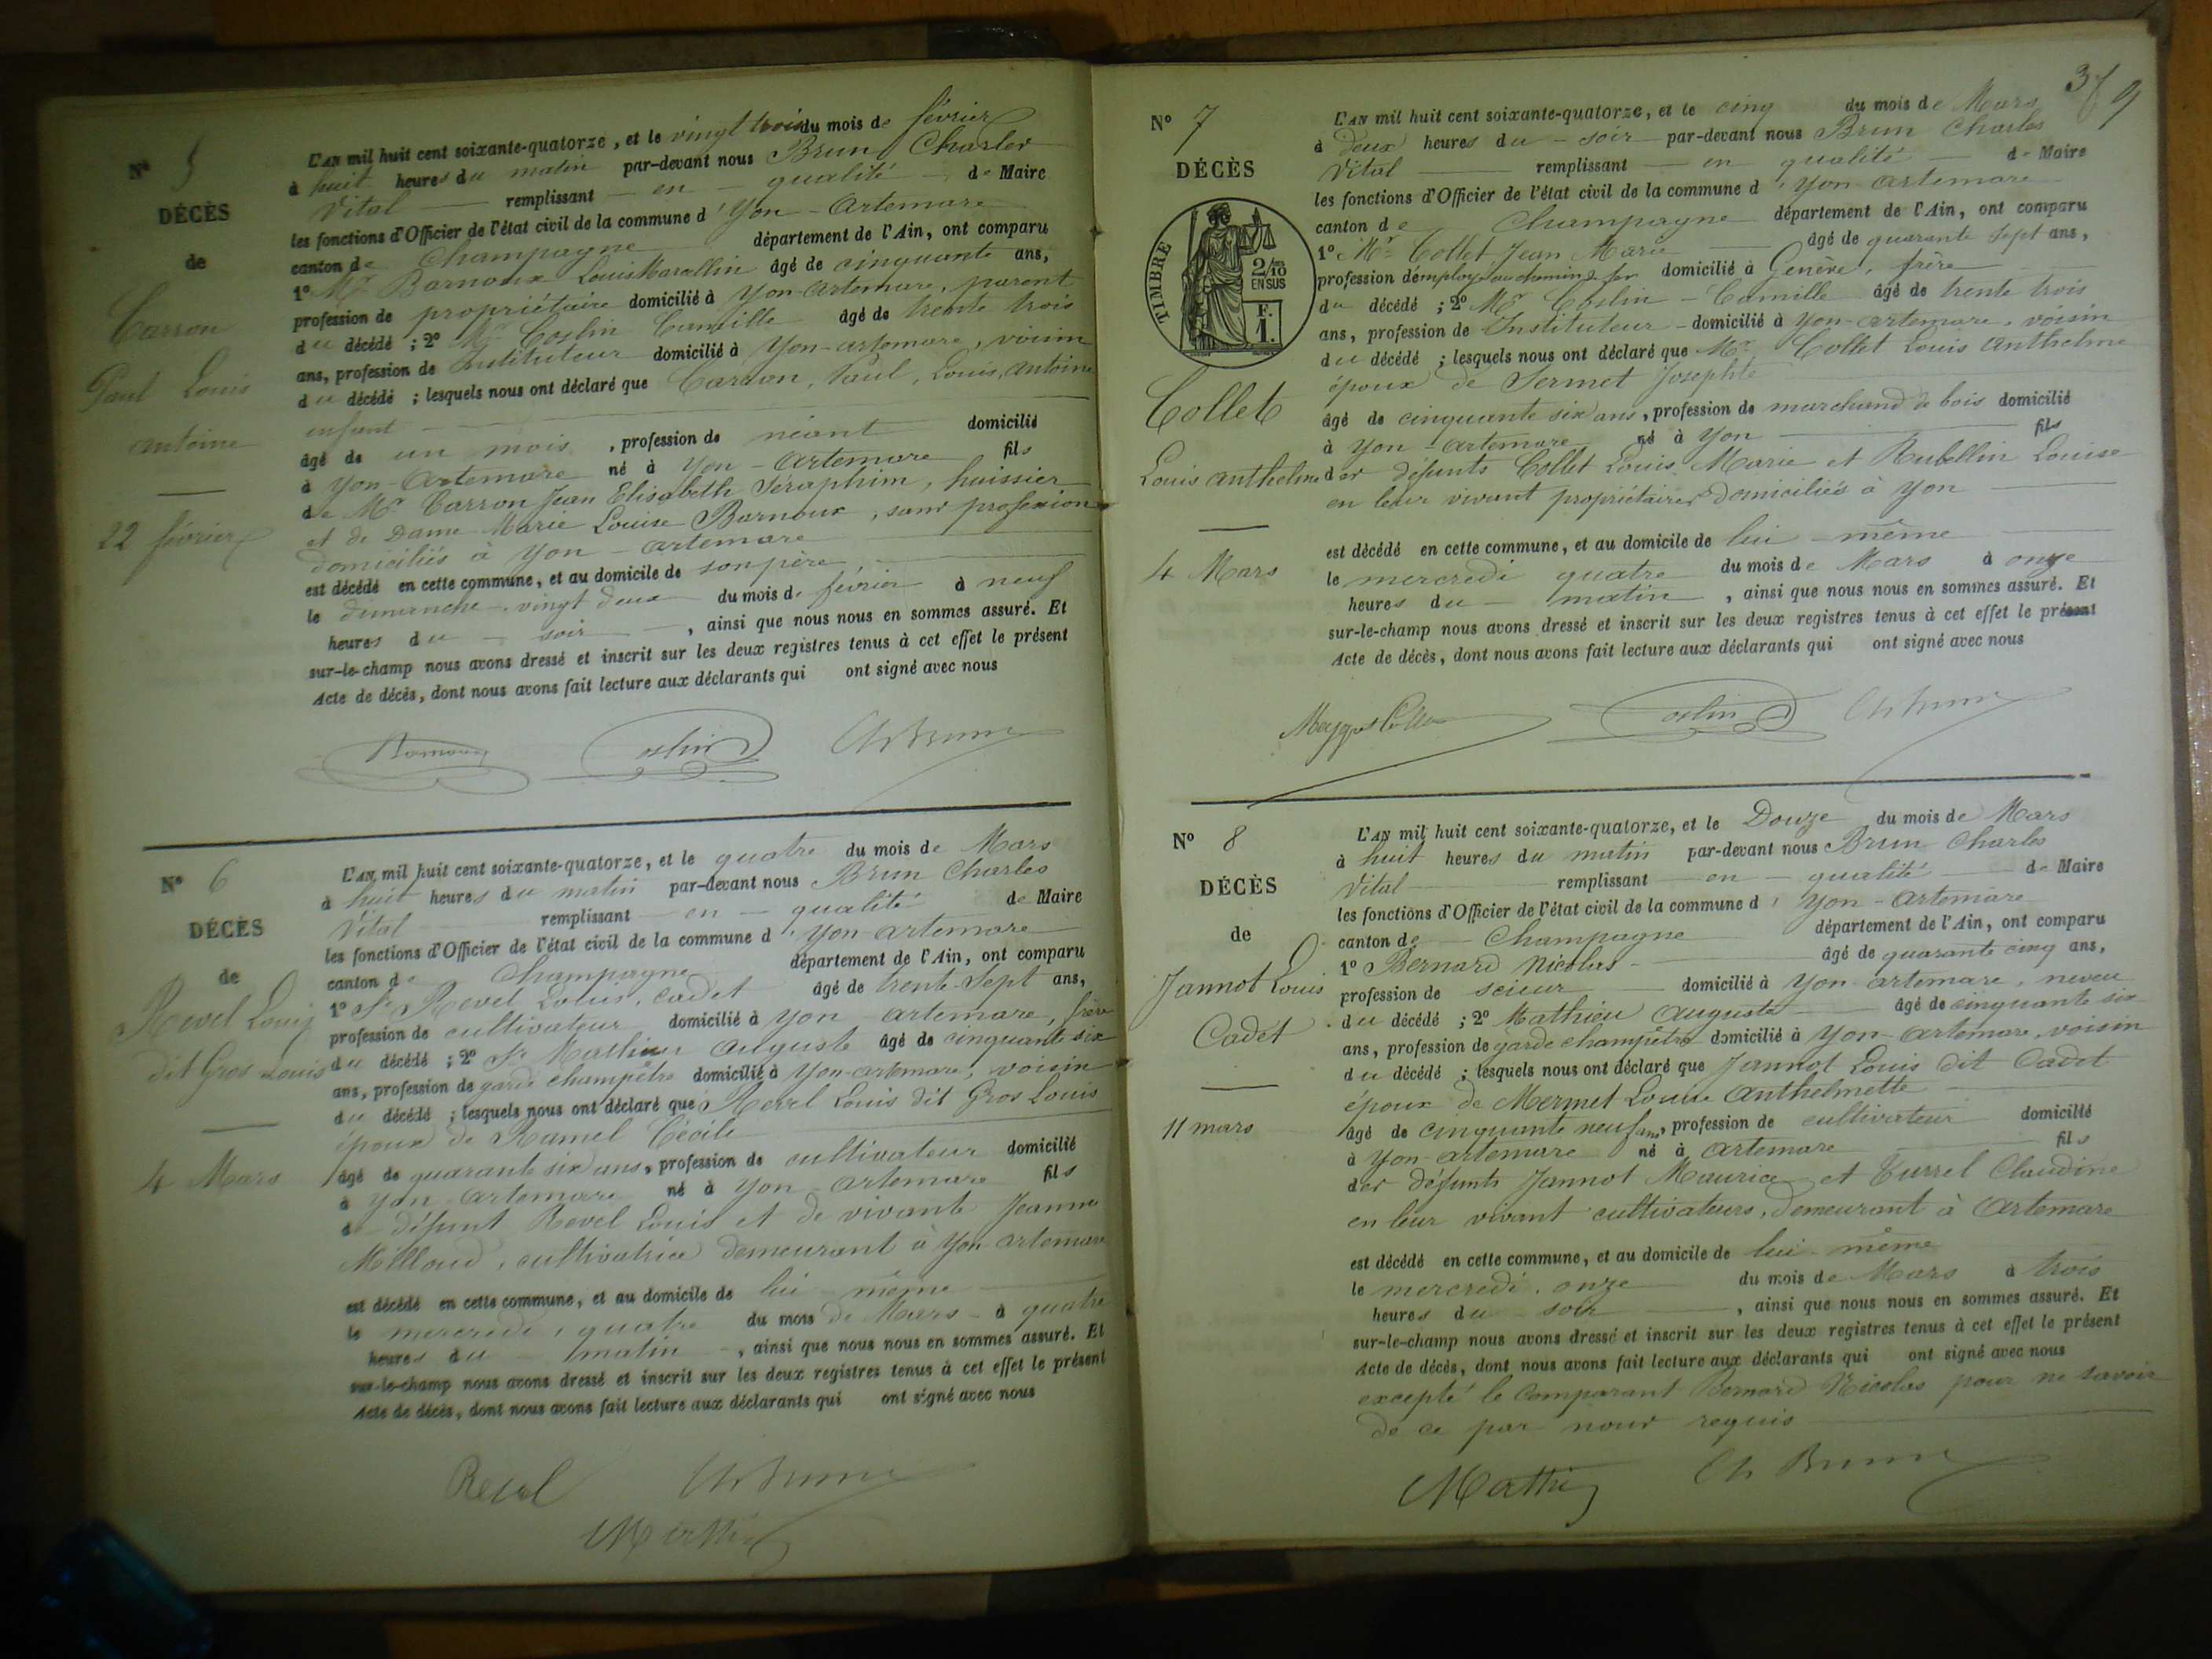 N° 5
DÉCÈS
de
Carron
Paul Louis
antoine
22 février
L'AN mil huit cent soixante-quatorze, et le vingt trois du mois de février
à huit heures du matin par-devant nous Brun Charles
Vital remplissant en qualité de Maire
les fonctions d'Officier de l'état civil de la commune d' Yon-Artemare
canton de Champagne département de l'Ain, ont comparu
1° Mr Barnoux Louis Marcellin âgé de cinquante ans,
profession de propriétaire domicilié à Yon-artemare, parent
du décédé ; 2° Mr Coslin Camille âgé de trente trois
ans, profession de Instituteur domicilié à Yon-artemare, voisin
du décédé ; lesquels nous ont déclaré que Carron, Paul, Louis, Antoine
enfant
âgé de un mois, profession de néant domicilié
à Yon-Artemare né à Yon-Artemare fils
de Mr Carron Jean Elisabeth Séraphim, huissier
et de Dame Marie Louise Barnoux, sans profession
domiciliés à Yon-artemare
est décédé en cette commune, et au domicile de son père
le dimanche, vingt deux du mois de février à neuf
heures du soir, ainsi que nous nous en sommes assuré. Et
sur-le-champ nous avons dressé et inscrit sur les deux registres tenus à cet effet le présent
Acte de décès, dont nous avons fait lecture aux déclarants qui ont signé avec nous
Barnoux Coslin Ch Brun
N° 6
DÉCÈS
de
Revel Louis
dit Gros Louis
4 Mars
L'AN mil huit cent soixante-quatorze, et le quatre du mois de Mars
à huit heures du matin par-devant nous Brun Charles
Vital remplissant en qualité de Maire
les fonctions d'Officier de l'état civil de la commune d' Yon-artemare
canton de Champagne département de l'Ain, ont comparu
1° Sr Revel Louis, cadet âgé de trente-sept ans,
profession de cultivateur domicilié à Yon-artemare, frère
du décédé ; 2° Sr Mathieu Auguste âgé de cinquante six
ans, profession de garde champêtre domicilié à Yon-artemare, voisin
du décédé ; lesquels nous ont déclaré que Revel Louis dit Gros Louis
époux de Ramel Cécile
âgé de quarante six ans, profession de cultivateur domicilié
à Yon-artemare né à Yon-artemare fils
de défunt Revel Louis et de vivante Jeanne
Milloud, cultivatrice demeurant à Yon-artemare
est décédé en cette commune, et au domicile de lui-même
le mercredi, quatre du mois de Mars à quatre
heures du matin, ainsi que nous nous en sommes assuré. Et
sur-le-champ nous avons dressé et inscrit sur les deux registres tenus à cet effet le présent
Acte de décès, dont nous avons fait lecture aux déclarants qui ont signé avec nous
Revel Ch Brun
Mathieu
N° 7
DÉCÈS
TIMBRE
2/10
EN SUS
F.
1.
Collet
Louis anthelme
4 Mars
L'AN mil huit cent soixante-quatorze, et le cinq du mois de Mars
à deux heures du soir par-devant nous Brun Charles
Vital remplissant en qualité de Maire
les fonctions d'Officier de l'état civil de la commune d' Yon-artemare
canton de Champagne département de l'Ain, ont comparu
1° Mr Collet Jean Marie âgé de quarante sept ans,
profession d'employé au chemin de fer domicilié à Genève, frère
du décédé ; 2° Mr Coslin-Camille âgé de trente trois
ans, profession de Instituteur domicilié à Yon-artemare, voisin
du décédé ; lesquels nous ont déclaré que Mr Collet Louis Anthelme
époux de Sermet Josephte
âgé de cinquante six ans, profession de marchand de bois domicilié
à Yon-artemare né à Yon fils
des défunts Collet Louis Marie et Rubellin Louise
en leur vivant propriétaires domiciliés à Yon
est décédé en cette commune, et au domicile de lui-même
le mercredi quatre du mois de Mars à onze
heures du matin, ainsi que nous nous en sommes assuré. Et
sur-le-champ nous avons dressé et inscrit sur les deux registres tenus à cet effet le présent
Acte de décès, dont nous avons fait lecture aux déclarants qui ont signé avec nous
Coslin Ch Brun
N° 8
DÉCÈS
de
Jannot Louis
Cadet
11 mars
L'AN mil huit cent soixante-quatorze, et le Douze du mois de Mars
à huit heures du matin par-devant nous Brun Charles
Vital remplissant en qualité de Maire
les fonctions d'Officier de l'état civil de la commune d' Yon-Artemare
canton de Champagne département de l'Ain, ont comparu
1° Bernard Nicolas âgé de quarante cinq ans,
profession de scieur domicilié à Yon-artemare, neveu
du décédé ; 2° Mathieu Auguste âgé de cinquante six
ans, profession de garde champêtre domicilié à Yon-artemare, voisin
du décédé ; lesquels nous ont déclaré que Jannot Louis dit Cadet
époux de Mermet Louise Anthelmette
âgé de cinquante neuf ans, profession de cultivateur domicilié
à Yon-artemare né à artemare fils
des défunts Jannot Maurice et Turrel Claudine
en leur vivant cultivateurs, demeurant à Artemare
est décédé en cette commune, et au domicile de lui-même
le mercredi, onze du mois de Mars à trois
heures du soir, ainsi que nous nous en sommes assuré. Et
sur-le-champ nous avons dressé et inscrit sur les deux registres tenus à cet effet le présent
Acte de décès, dont nous avons fait lecture aux déclarants qui ont signé avec nous
excepté le comparant Bernard Nicolas pour ne savoir
de ce par nous requis
Mathieu Ch Brun